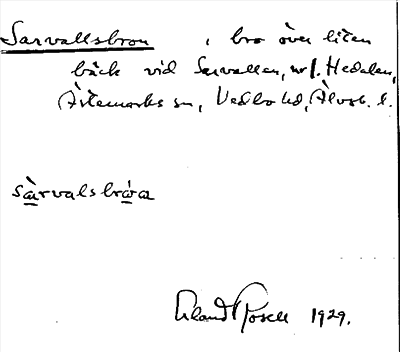 Sarvallsbron, bro över liten
bäck vid Sarvallen, nr f. Hedalen,
Ärtemarks sn, Vedbo hd, Älvsb. l.
sàrvalsbróa
Erland Rosell 1929.